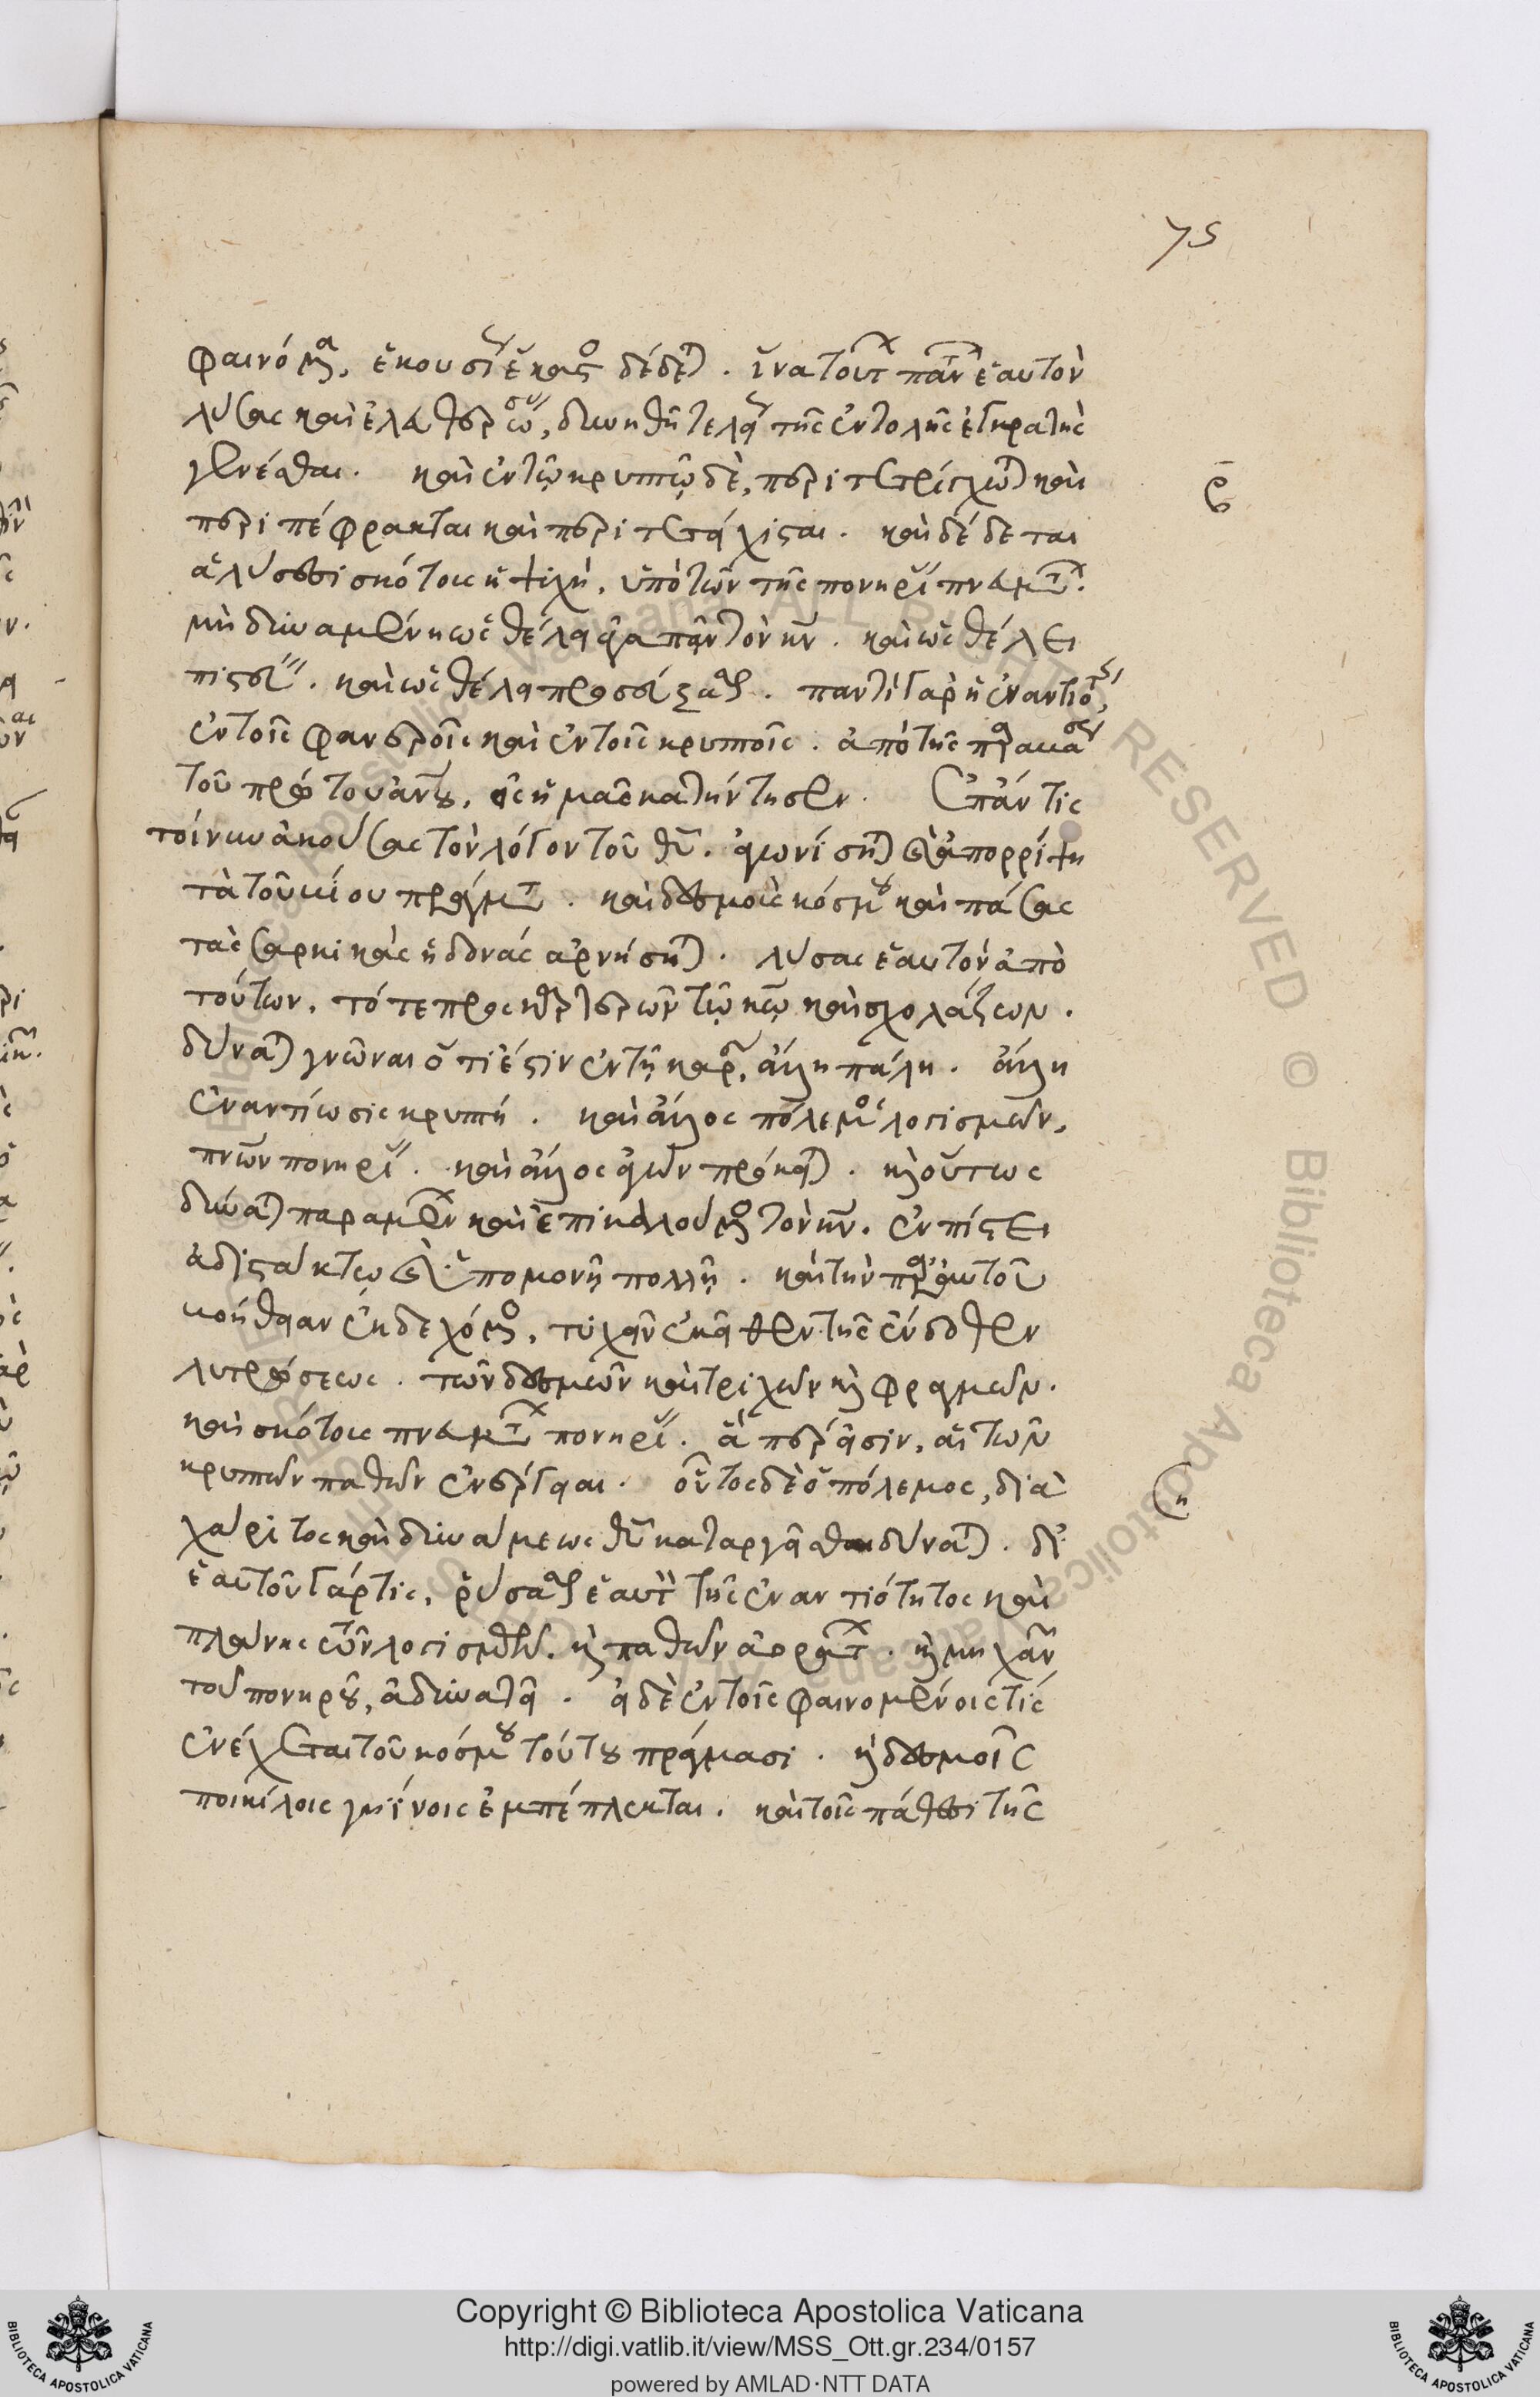 75
φαινόμενα, ἑκουσίως ἕκαστος δέδεται. ἵνα τούτων πάντων ἑαυτὸν
λύσας καὶ ἐλευθερώσας, δυνηθῇ τελείως τῆς ἐντολῆς ἐγκρατὴς
γενέσθαι. καὶ ἐν τῷ κρυπτῷ δὲ, περιτετρίγχωται καὶ
περιπέφρακται καὶ περιτετείχισται. καὶ δέδεται
ἁλύσεσι σκότους ἡ ψυχὴ, ὑπὸ τῶν τῆς πονηρίας πνευμάτων.
μὴ δυναμένη ὡς θέλει ἀγαπᾶν τὸν κν. καὶ ὡς θέλει
πιστεῦσαι. καὶ ὡς θέλει προσεύξασθαι. παντὶ γὰρ ἡ ἐναντιότης,
ἐν τοῖς φανεροῖς καὶ ἐν τοῖς κρυπτοῖς. ἀπὸ τῆς παραβάσεως
τοῦ πρώτου ἀνου, εἰς ἡμᾶς κατήντησεν. Ἐπάν τις
τοίνυν ἀκούσας τὸν λόγον τοῦ θυ. ἀγωνίσηται καὶ ἀπορρίψῃ
τὰ τοῦ βίου πράγματα. καὶ δεσμοὺς κόσμου καὶ πάσας
τὰς σαρκικὰς ἡδονὰς ἀρνήσηται. λύσας ἑαυτὸν ἀπὸ
τούτων, τότε προσκαρτερῶν τῷ κω καὶ σχολάζων.
δύναται γνῶναι ὅτι ἐστὶν ἐν τῇ καρδίᾳ, ἄλλη πάλη. ἄλλη
ἐναντίωσις κρυπτή. καὶ ἄλλος πόλεμος λογισμῶν,
πνων πονηρίας. καὶ ἄλλος ἀγὼν πρόκειται. καὶ οὕτως
δύναται παραμένων καὶ ἐπικαλούμενος τὸν κν. ἐν πίστει
ἀδιστάκτῳ καὶ ὑπομονῇ πολλῇ. καὶ τὴν παρ' αὐτοῦ
βοήθειαν ἐκδεχόμενος, τυχεῖν ἐκεῖθεν τῆς ἔνδοθεν
λυτρώσεως. τῶν δεσμῶν καὶ τριγχῶν καὶ φραγμῶν.
καὶ σκότους πνευμάτων πονηρίας. ἅπερ εἰσὶν, αἱ τῶν
κρυπτῶν παθῶν ἐνέργειαι. οὗτος δὲ ὁ πόλεμος, διὰ
χάριτος καὶ δυνάμεως θυ καταργεῖσθαι δύναται. δι'
ἑαυτοῦ γάρ τις, ῥύσασθαι ἑαυτὸν τῆς ἐναντιότητος καὶ
πλάνης τῶν λογισμῶν. καὶ παθῶν ἀοράτων. καὶ μηχανῶν
τοῦ πονηροῦ, ἀδυνατεῖ. εἰ δὲ ἐν τοῖς φαινομένοις τὶς
ἐνέχεται τοῦ κόσμου τούτου πράγμασι. καὶ δεσμοῖς
ποικίλοις γηΐνοις ἐμπέπλεκται. καὶ τοῖς πάθεσι τῆς
Copyright © Biblioteca Apostolica Vaticana
http://digi.vatlib.it/view/MSS_Ott.gr.234/0157
powered by AMLAD·NTT DATA